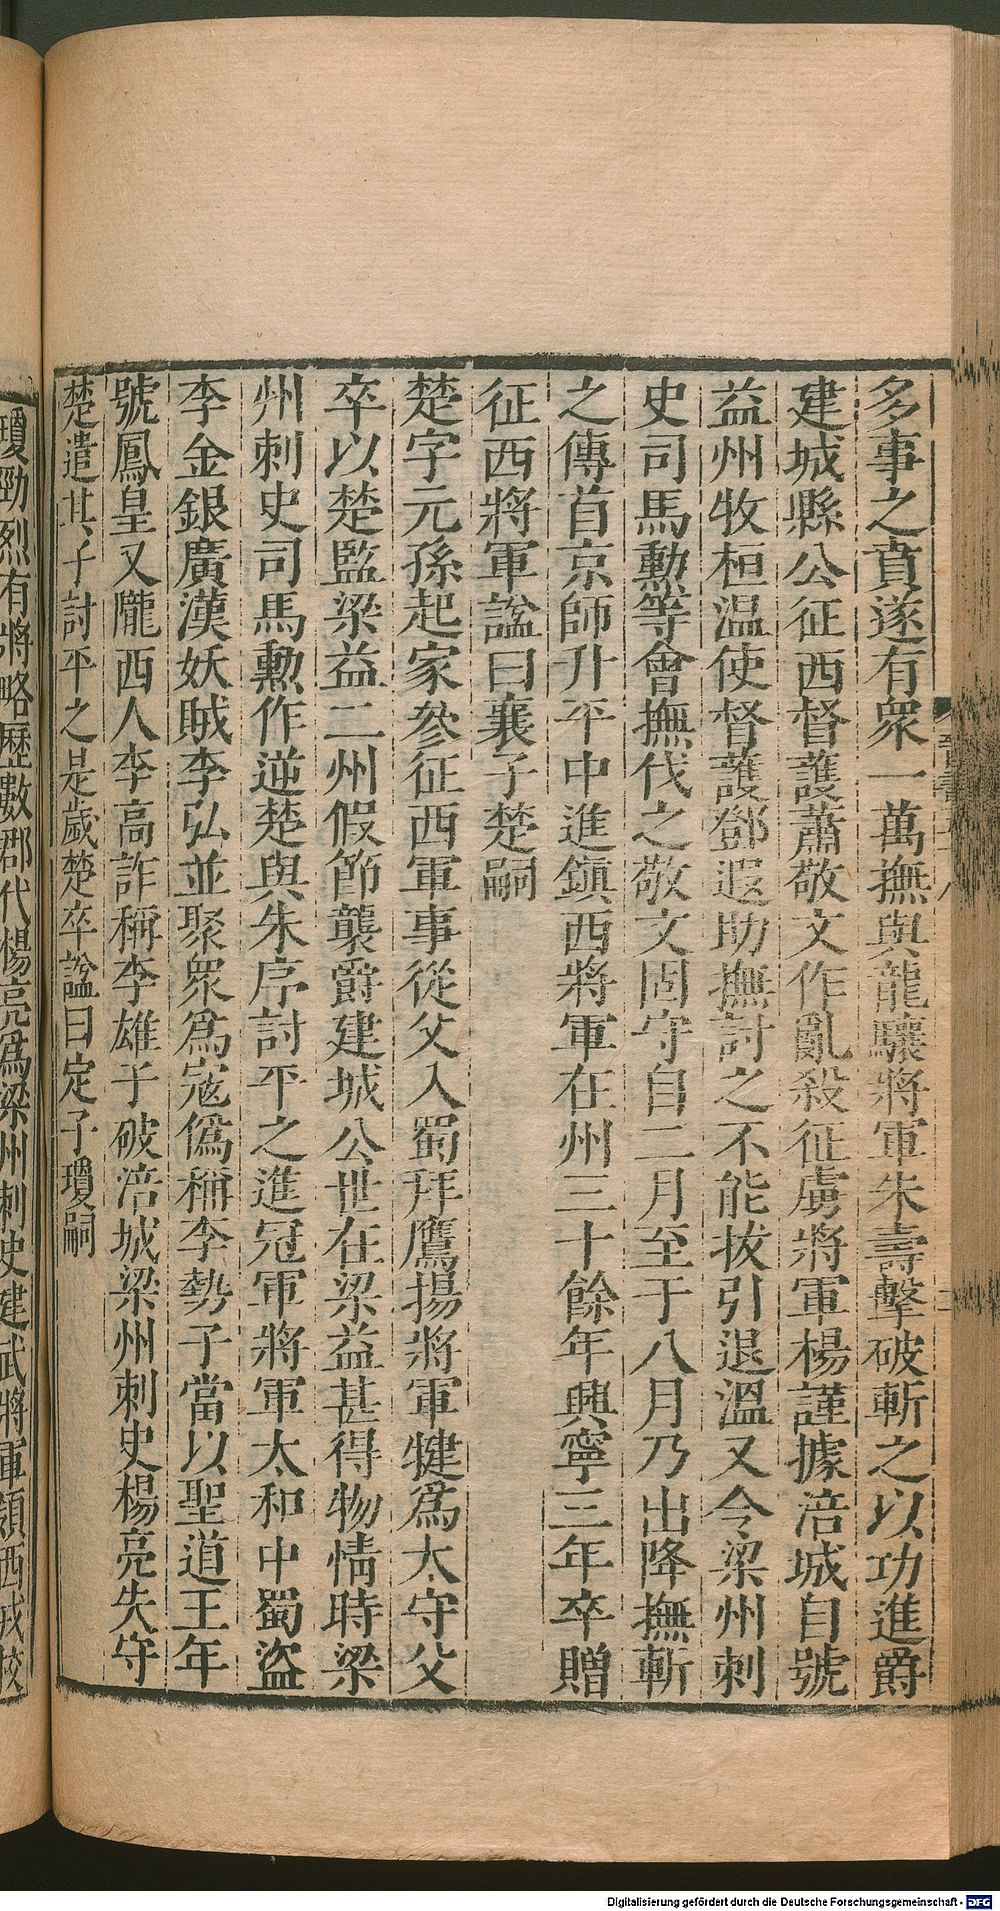 多事之賁遂有衆一萬撫與龍驤將軍朱壽擊破斬之以功進爵
建城縣公征西督護蕭敬文作亂殺征虜將軍楊謹據涪城自號
益州牧桓温使督護鄧遐助撫討之不能拔引退溫又令梁州刺
史司馬勲等會撫伐之敬文固守自二月至于八月乃出降撫斬
之傳首京師升平中進鎭西將軍在州三十餘年興寧三年卒贈
征西將軍諡曰襄子楚嗣
楚字元孫起家參征西軍事從父入蜀拜鷹揚將軍犍爲太守父
卒以楚監梁益二州假節襲爵建城公世在梁益甚得物情時梁
州刺史司馬勲作逆楚與朱序討平之進冠軍將軍太和中蜀盜
李金銀廣漢妖賊李弘並聚衆爲寇僞稱李勢子當以聖道王年
號鳳皇又隴西人李高詐稱李雄子破涪城梁州刺史楊亮失守
楚遣其子討平之是歲楚卒諡曰定子瓊嗣
瓊勁烈有將略歷數郡代楊亮爲梁州刺史建武將軍領西戎校
Digitalisierung gefördert durch die Deutsche Forschungsgemeinschaft - DFG